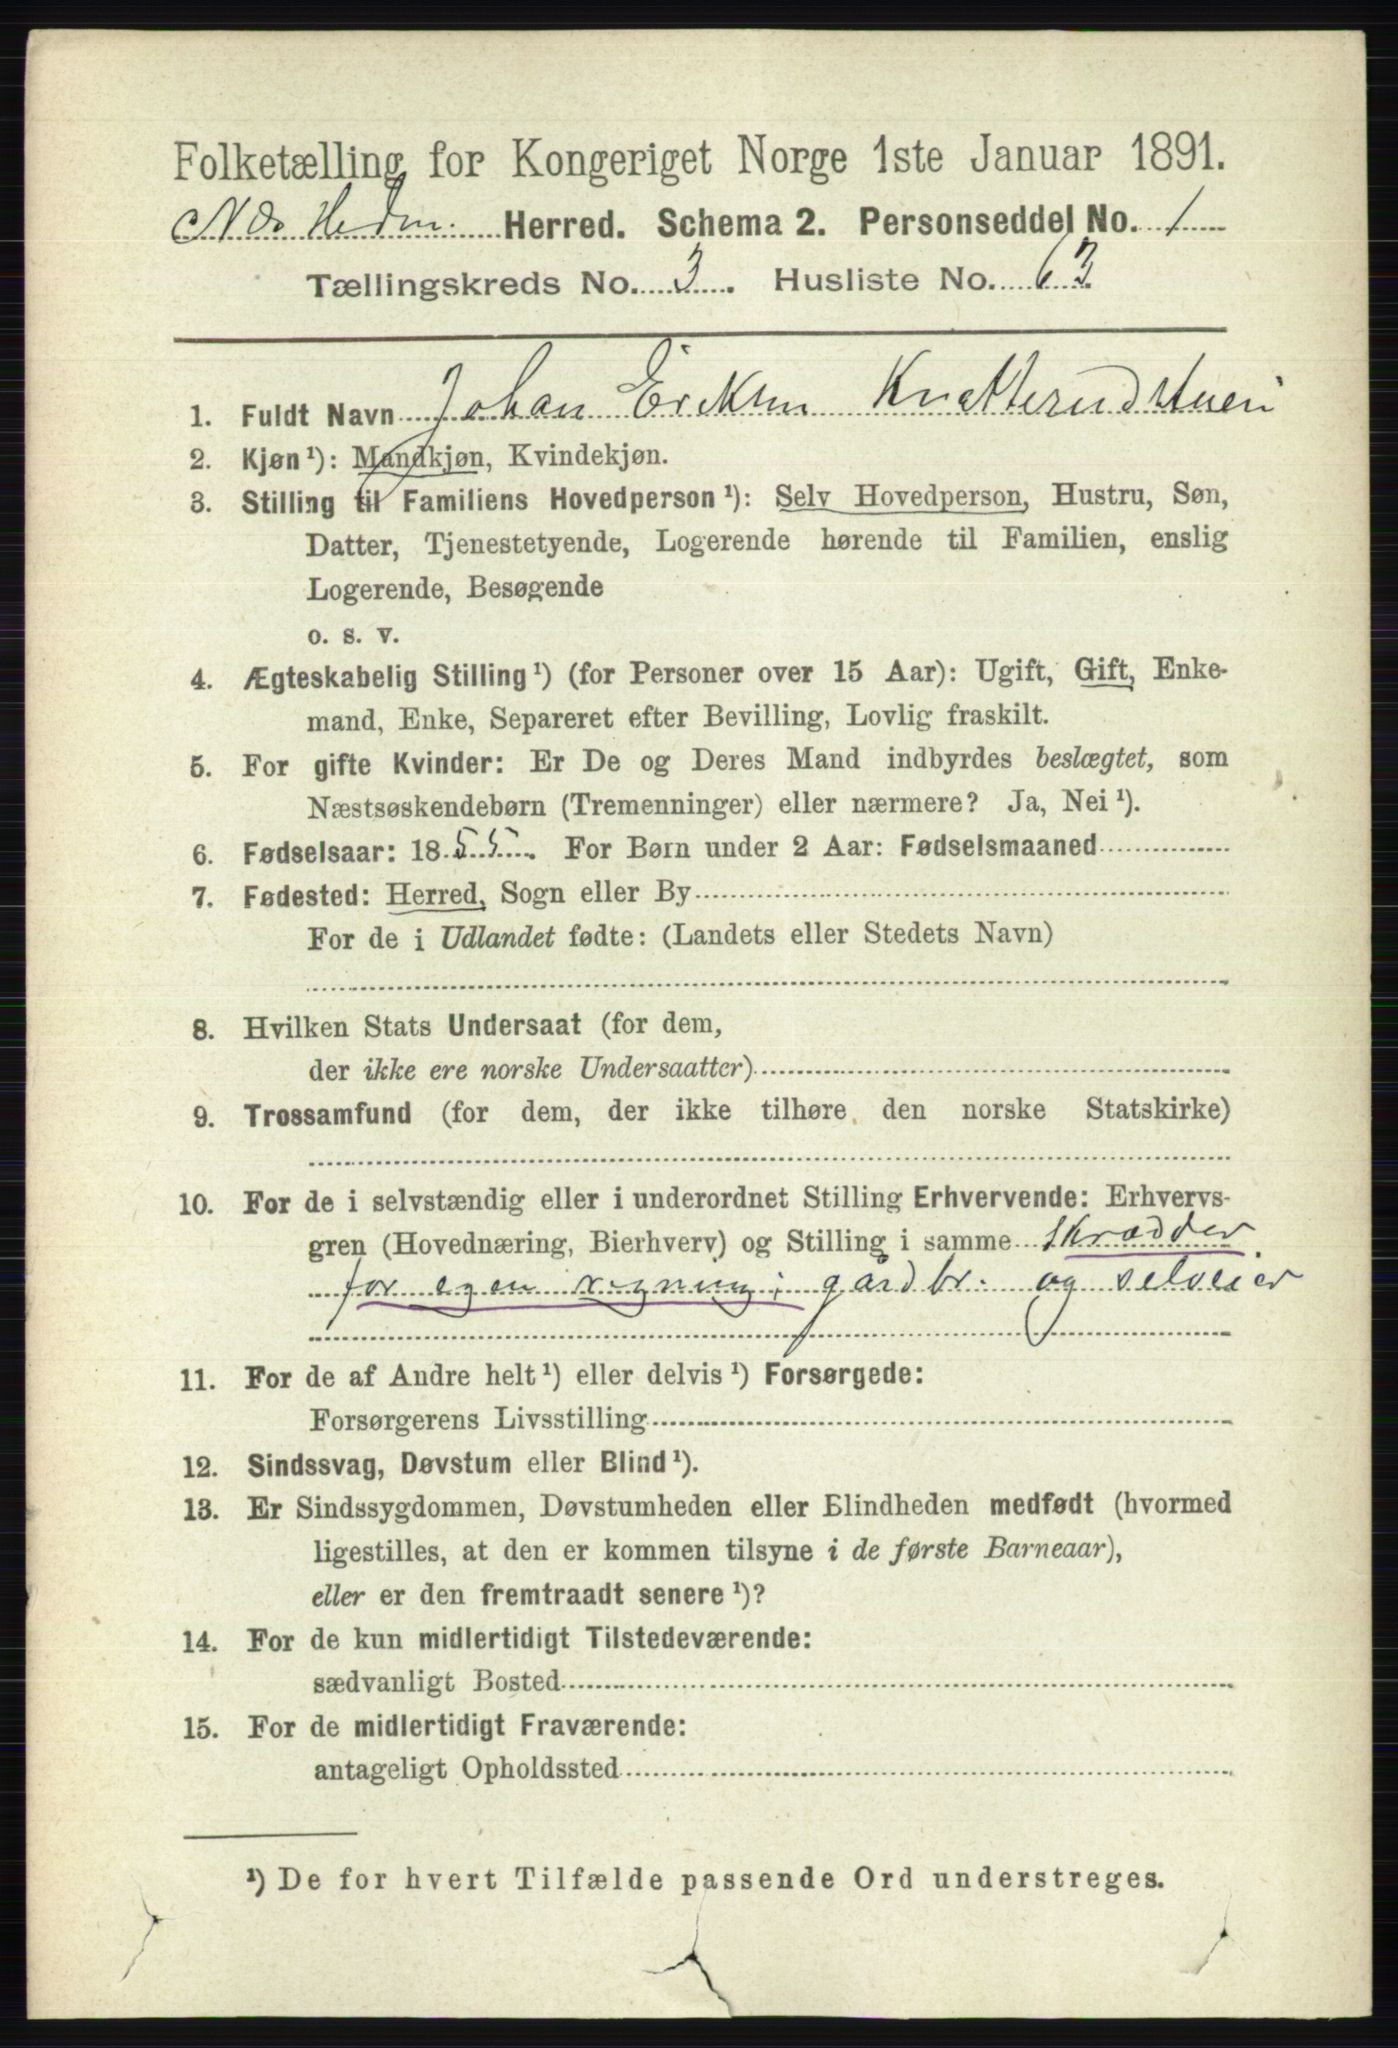 Folketælling for Kongeriget Norge 1ste Januar 1891.
Herred. Schema 2. Personseddel No. 1
Tællingskreds No. 3. Husliste No. 63
1. Fuldt Navn Johan Eriksen Knatterudstuen
2. Kjøn¹): Mandkjøn, Kvindekjøn.
3. Stilling til Familiens Hovedperson¹): Selv Hovedperson, Hustru, Søn,
Datter, Tjenestetyende, Logerende hørende til Familien, enslig
Logerende, Besøgende
o. s. v.
4. Ægteskabelig Stilling¹) (for Personer over 15 Aar): Ugift, Gift, Enke-
mand, Enke, Separeret efter Bevilling, Lovlig fraskilt.
5. For gifte Kvinder: Er De og Deres Mand indbyrdes beslægtet, som
Næstsøskendebørn (Tremenninger) eller nærmere? Ja, Nei¹).
6. Fødselsaar: 1855. For Børn under 2 Aar: Fødselsmaaned
7. Fødested: Herred, Sogn eller By
For de i Udlandet fødte: (Landets eller Stedets Navn)
8. Hvilken Stats Undersaat (for dem,
der ikke ere norske Undersaatter)
9. Trossamfund (for dem, der ikke tilhøre den norske Statskirke)
10. For de i selvstændig eller i underordnet Stilling Erhvervende: Erhvervs-
gren (Hovednæring, Bierhverv) og Stilling i samme skrædder
for egen regning; gårdbr. og selveier
11. For de af Andre helt¹) eller delvis¹) Forsørgede:
Forsørgerens Livsstilling
12. Sindssvag, Døvstum eller Blind¹).
13. Er Sindssygdommen, Døvstumheden eller Blindheden medfødt (hvormed
ligestilles, at den er kommen tilsyne i de første Barneaar),
eller er den fremtraadt senere¹)?
14. For de kun midlertidigt Tilstedeværende:
sædvanligt Bosted
15. For de midlertidigt Fraværende:
antageligt Opholdssted
¹) De for hvert Tilfælde passende Ord understreges.